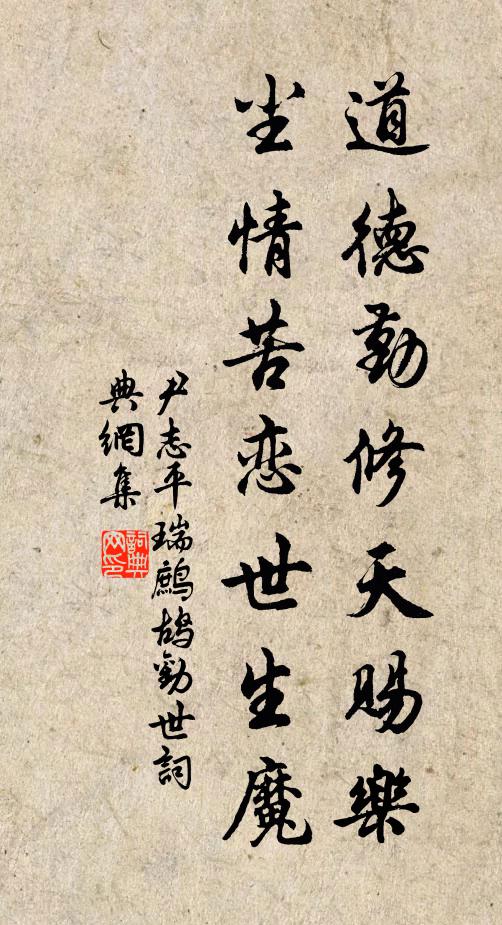 道德勤修天賜樂
尘情苦恋世生魔
尹志平瑞鷓鴣勸世詞
典網集
詞典网印